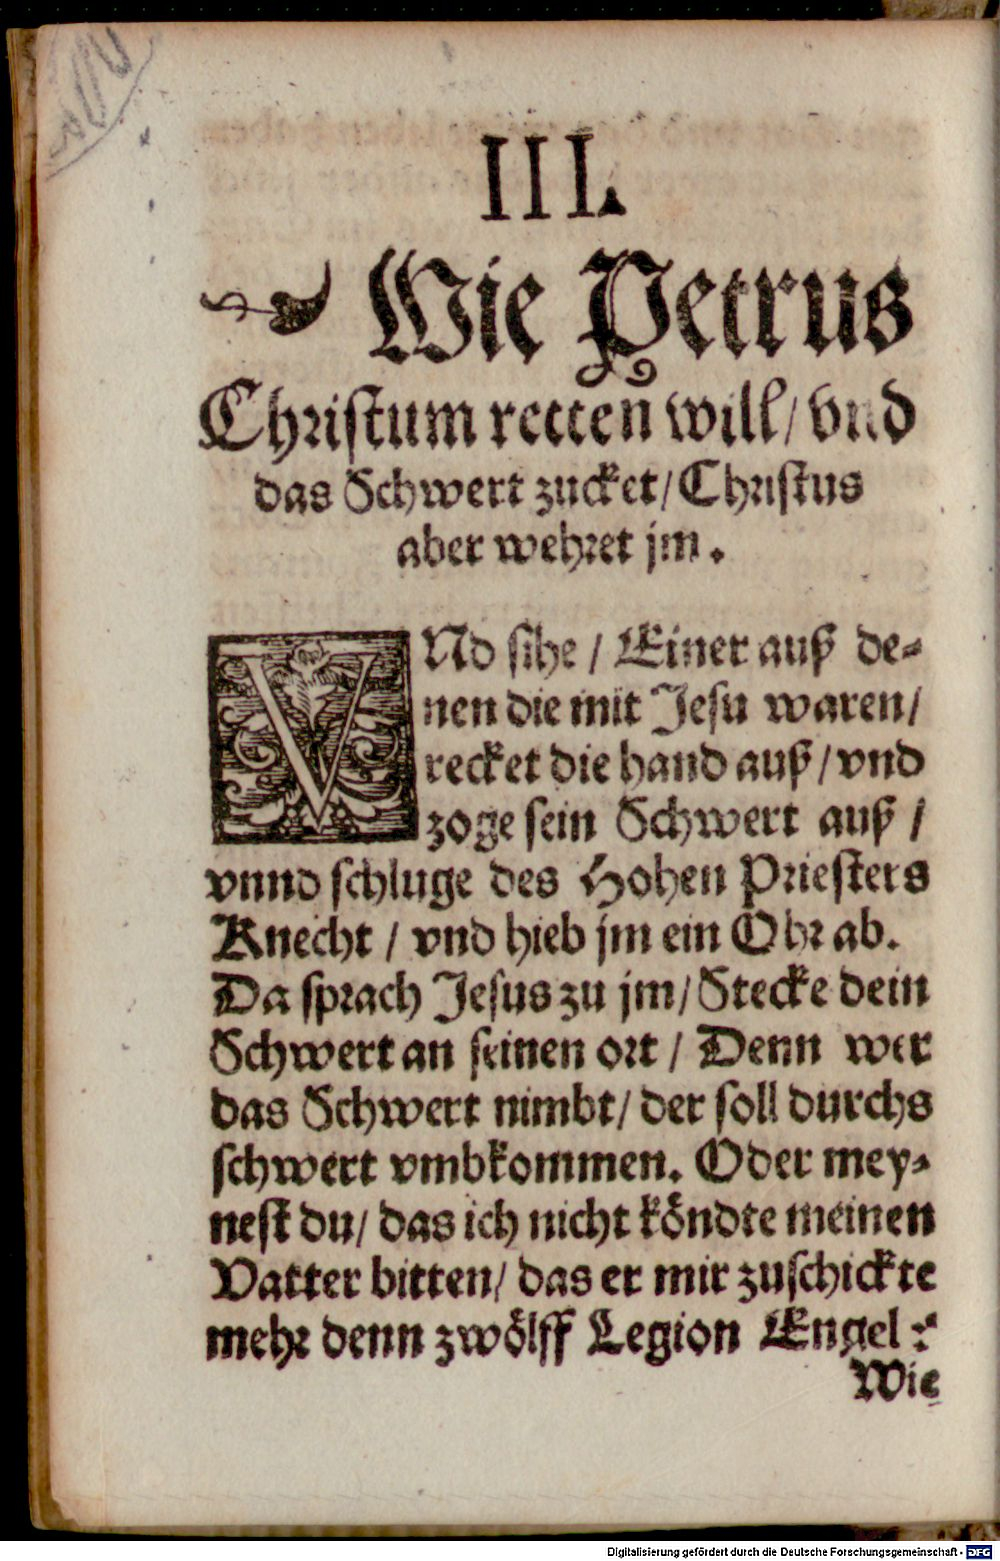 III.
Wie Petrus
Christum retten will/ vnd
das Schwert zucket/ Christus
aber wehret jm.
VNd sihe / Einer auß de-
nen die mit Jesu waren/
recket die hand auß/ vnd
zoge sein Schwert auß /
vnnd schluge des Hohen Priesters
Knecht / vnd hieb jm ein Ohr ab.
Da sprach Jesus zu jm/ Stecke dein
Schwert an seinen ort / Denn wer
das Schwert nimbt/ der soll durchs
schwert vmbkommen. Oder mey-
nest du/ das ich nicht köndte meinen
Vatter bitten/ das er mir zuschickte
mehr denn zwölff Legion Engel?
Wie
Digitalisierung gefördert durch die Deutsche Forschungsgemeinschaft - DFG